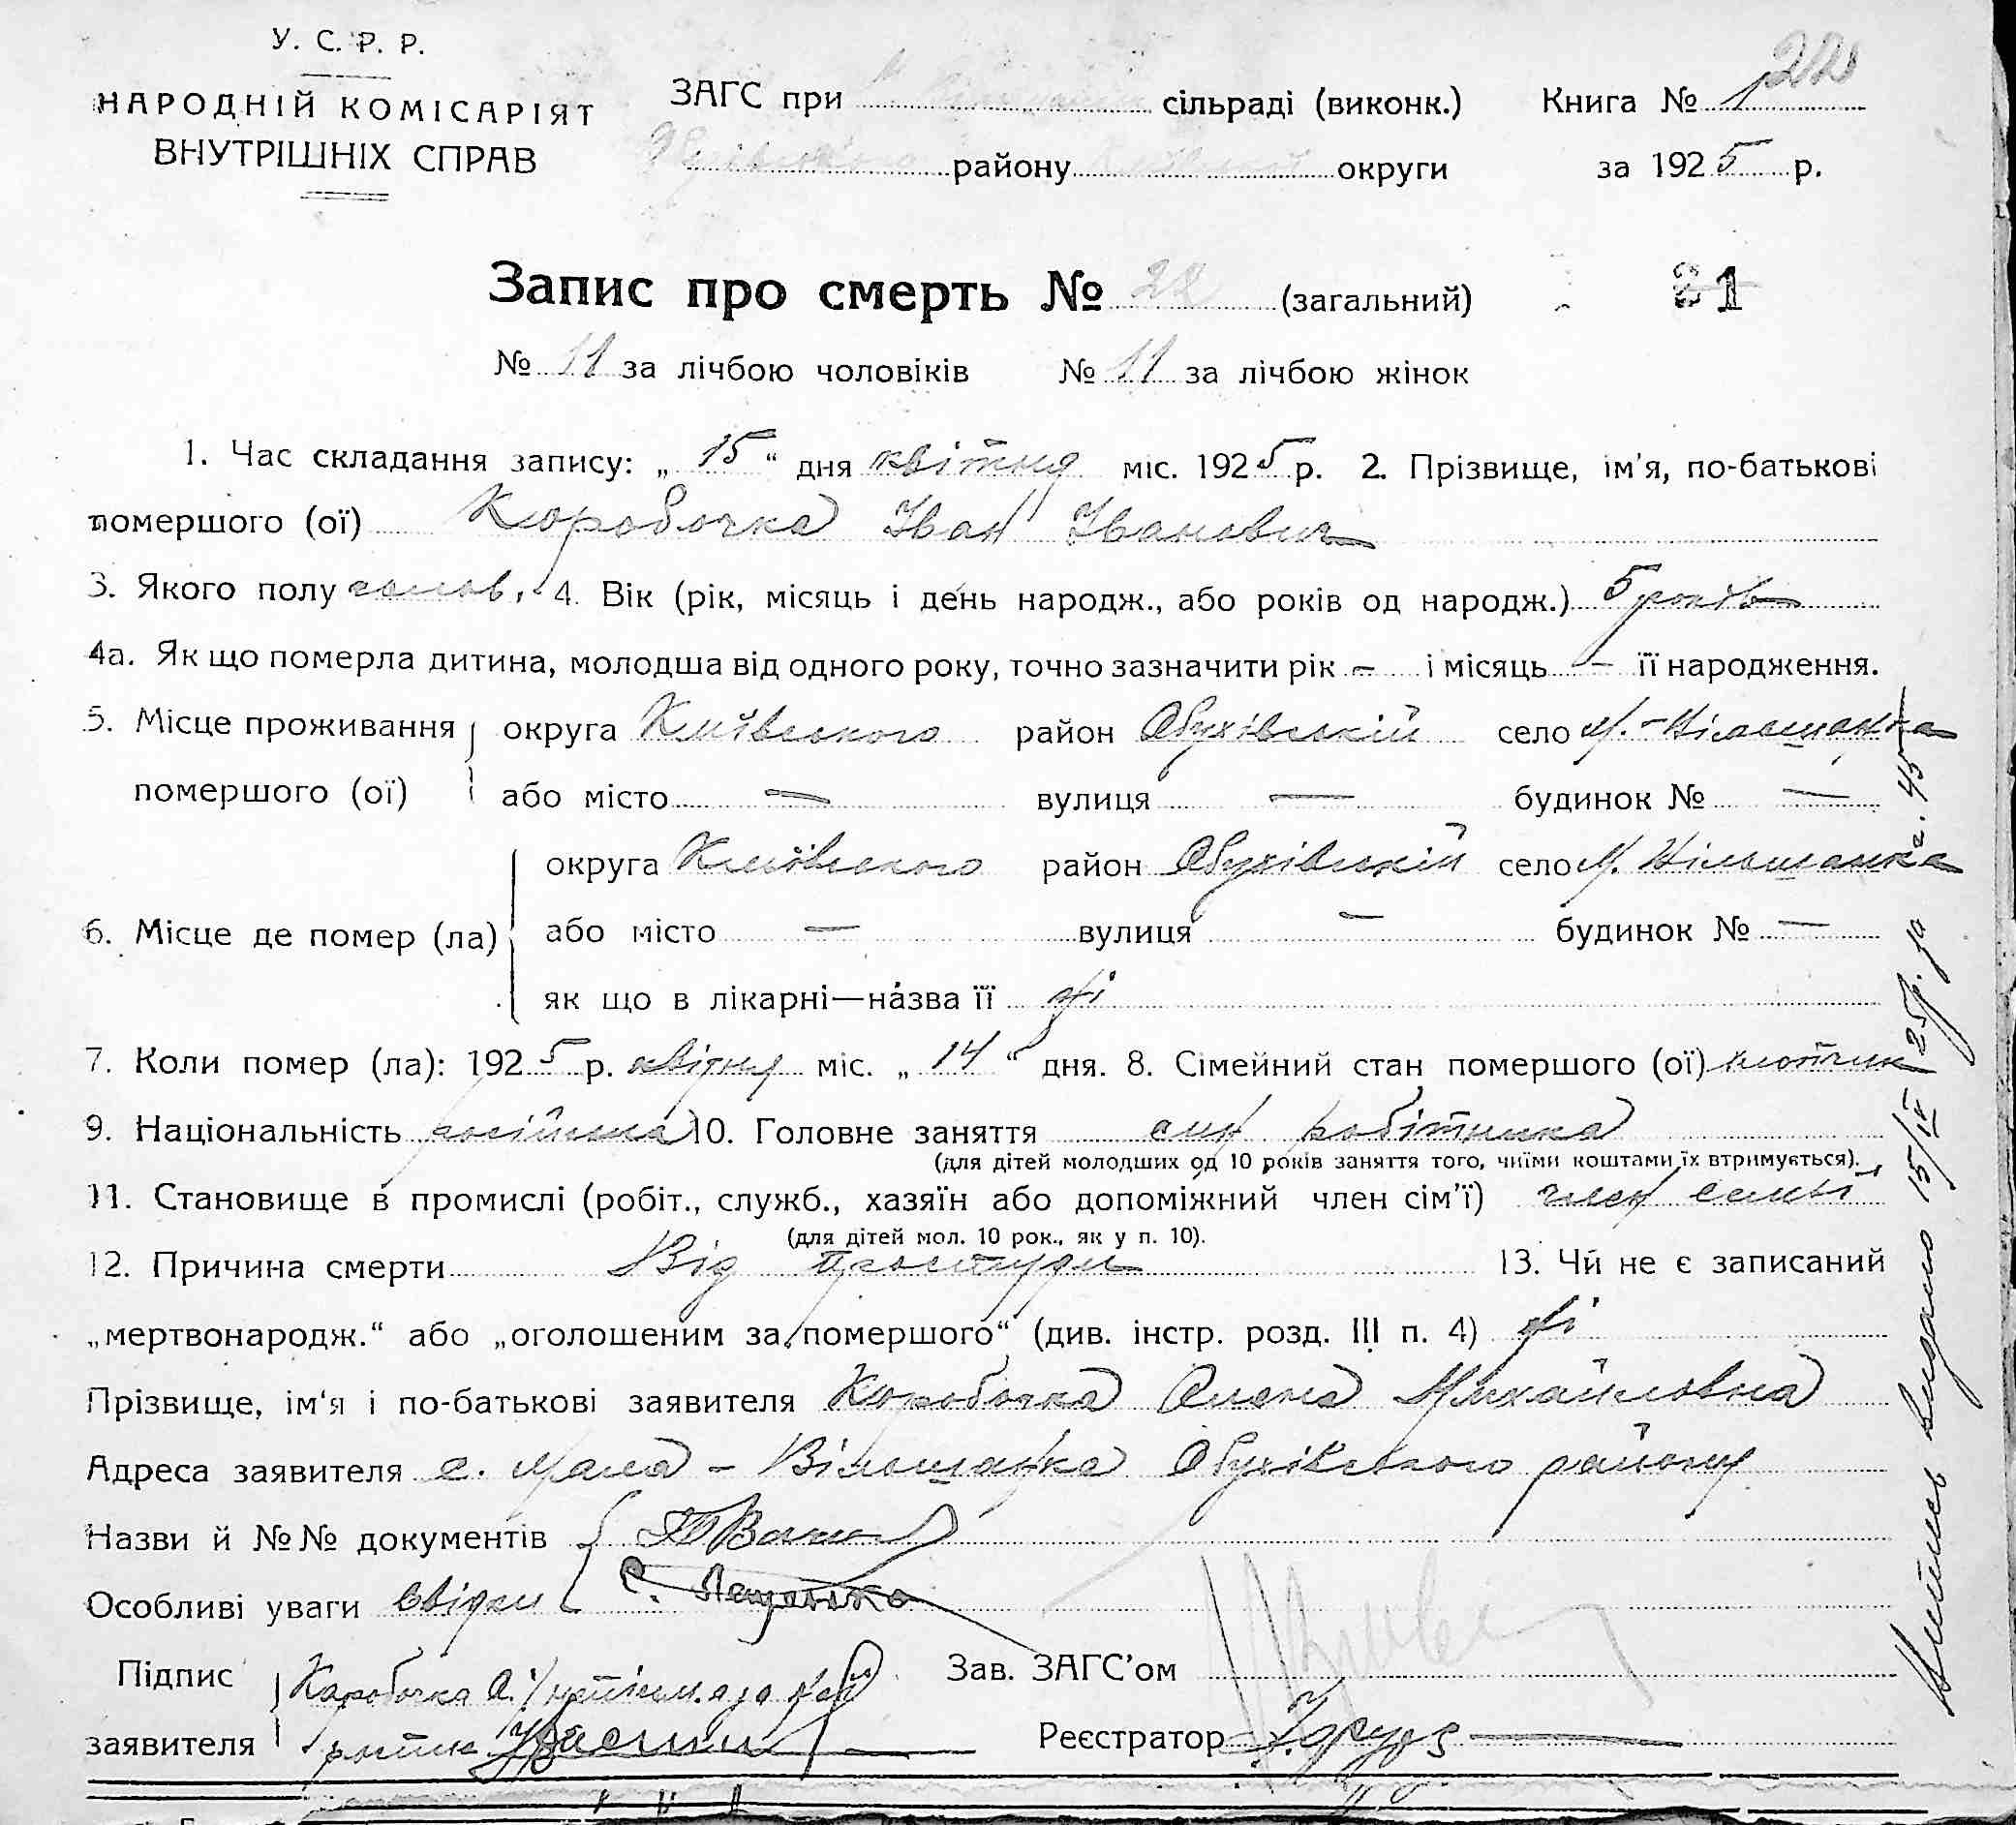 У. С. Р. Р.
НАРОДНІЙ КОМІСАРІЯТ
ВНУТРІШНІХ СПРАВ
ЗАГС при сільраді (виконк.)
району округи
Книга № 1 22
за 1925 р.
Запис про смерть № 22 (загальний)
31
№ 11 за лічбою чоловіків № 11 за лічбою жінок
1. Час складання запису: „ 15 “ дня квітня міс. 1925 р. 2. Прізвище, ім'я, по-батькові
помершого (ої) Коробочка Іван Іванович
3. Якого полу чолов. 4. Вік (рік, місяць і день народж., або років од народж.) 5 років
4а. Як що померла дитина, молодша від одного року, точно зазначити рік – і місяць – її народження.
5. Місце проживання округа Київського район Обухівський село М.-Вільшанка
помершого (ої) або місто — вулиця — будинок № —
округа Київського район Обухівський село М. Вільшанка
6. Місце де помер (ла) або місто — вулиця — будинок № —
як що в лікарні—назва її ні
7. Коли помер (ла): 1925 р. квітня міс. „ 14 “ дня. 8. Сімейний стан помершого (ої)
9. Національність 10. Головне заняття син робітника
(для дітей молодших од 10 років заняття того, чиїми коштами їх втримується).
11. Становище в промислі (робіт., служб., хазяїн або допоміжний член сім'ї) член семьї
(для дітей мол. 10 рок., як у п. 10).
12. Причина смерти Від простуди 13. Чи не є записаний
„мертвонародж.“ або „оголошеним за помершого“ (див. інстр. розд. III п. 4) ні
Прізвище, ім'я і по-батькові заявителя Коробочка Олена Михайловна
Адреса заявителя с. Мала - Вільшанка Обухівського району
Назви й №№ документів
Особливі уваги Свідки
Підпис Коробочка О.
заявителя
Зав. ЗАГС'ом
Реєстратор
видано 15/IV 25р.